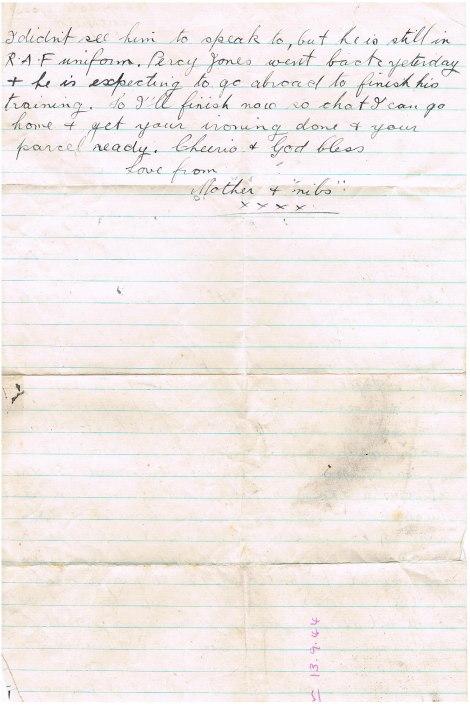 I didn't see him to speak to, but he is still in
R.A.F uniform. Percy Jones went back yesterday
& he is expecting to go abroad to finish his
training. So I'll finish now so that I can go
home & get your ironing done & your
parcel ready. Cheerio & God bless
Love from
Mother & "nibs".
x x x x.
13.9.44